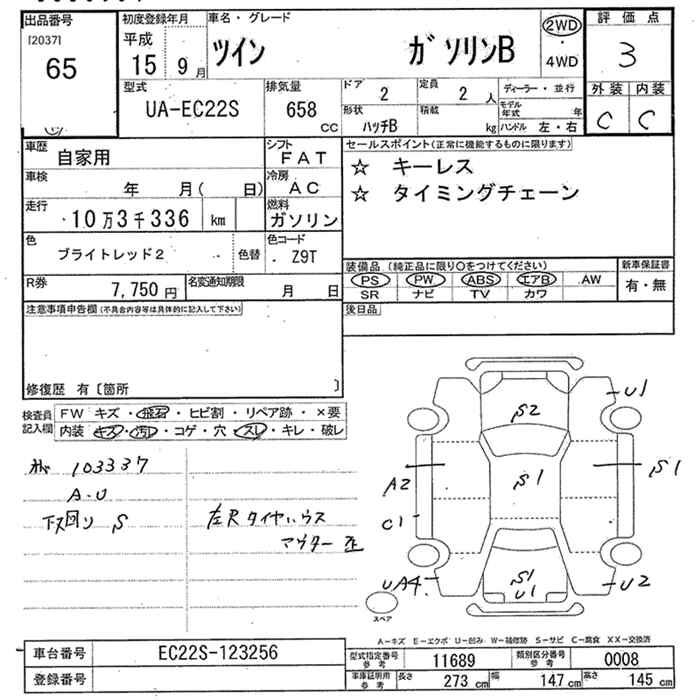 出品番号 初度登録年月 車名・グレード 評価点
[2037] 平成 ツイン ガソリンB 2WD・4WD 3
65 15年9月 外装 内装
型式 排気量 ドア 定員 ディーラー・並行
UA-EC22S 658cc 2 2人 C C
形状 積載 モデル年式 年
ハッチB kg ハンドル 左・右
車歴 自家用 シフト FAT セールスポイント(正常に機能するものに限ります)
車検 年 月( 日) 冷房 AC ☆ キーレス
☆ タイミングチェーン
走行 10万3千336 km 燃料 ガソリン
色 ブライトレッド2 色替 色コード Z9T
装備品(純正品に限り○をつけてください) 新車保証書
R券 7,750円 名変通知期限 月 日 PS PW ABS エアB AW 有・無
SR ナビ TV カワ
注意事項申告欄(不具合内容等は具体的に記入して下さい) 後日品
修復歴 有〔箇所 〕
検査員記入欄 FW キズ・飛石・ヒビ割・リペア跡・×要
内装 キズ・汚れ・コゲ・穴・スレ・キレ・破レ
103337
A-U
下回り S
左Rタイヤハウス
U1
S2
S1
S1
A2
C1
UA4
S1
U1
U2
スペア
A-キズ E-エクボ U-凹み W-補修跡 S-サビ C-腐食 XX-交換済
車台番号 EC22S-123256 型式指定番号 参考 11689 類別区分番号 参考 0008
登録番号 車庫証明用 参考 長さ 273cm 幅 147cm 高さ 145cm